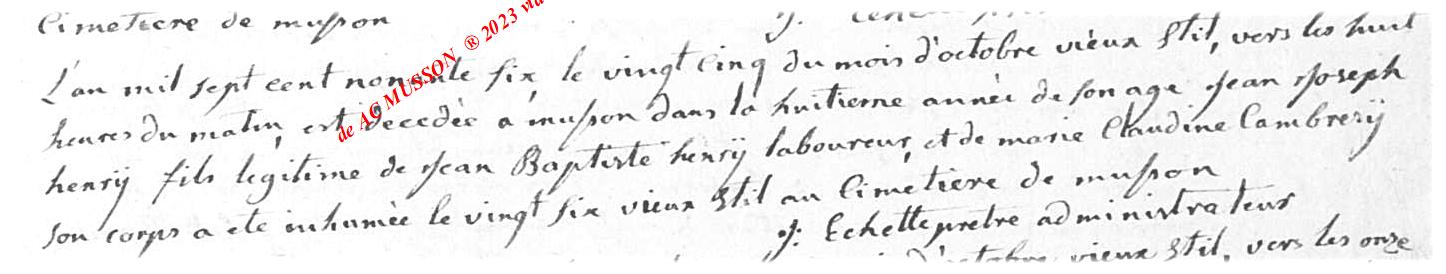 Cimetiere de musson
L'an mil sept cent nonante six, le vingt cinq du mois d'octobre vieux stil, vers les huit
heures du matin, est décedée a musson dans la huitieme année de son age Jean Joseph
henrÿ fils legitime de Jean Baptiste henrÿ laboureur, et de marie Claudine Cambresÿ
son corps a ete inhumée le vingt six vieux stil au Cimetiere de musson
J: Echette pretre administrateur
d'octobre vieux stil, vers les onze
de AG MUSSON ® 2023 via